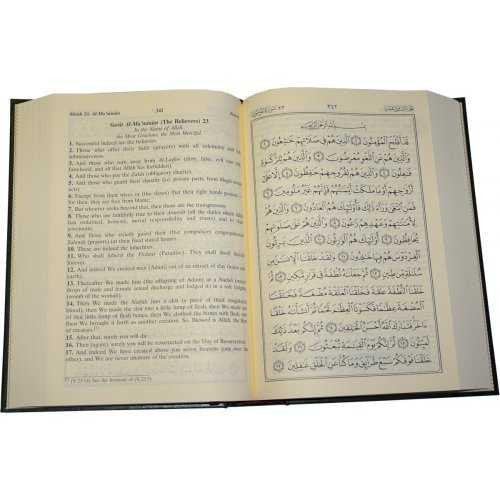 Sûrah 23. Al-Mu'minûn
341
Sûrat Al-Mu'minûn (The Believers) 23
In the Name of Allâh,
the Most Gracious, the Most Merciful.
1. Successful indeed are the believers.
2. Those who offer their Salât (prayers) with all solemnity and full
submissiveness.
3. And those who turn away from Al-Laghw (dirty, false, evil vain talk,
falsehood, and all that Allâh has forbidden).
4. And those who pay the Zakât (obligatory charity).
5. And those who guard their chastity (i.e. private parts, from illegal sexual
acts)
6. Except from their wives or (the slaves) that their right hands possess,
for then, they are free from blame;
7. But whoever seeks beyond that, then those are the transgressors;
8. Those who are faithfully true to their Amanât (all the duties which Allâh
has ordained, honesty, moral responsibility and trusts) and to their
covenants;
9. And those who strictly guard their (five compulsory congregational)
Salawât (prayers) (at their fixed stated hours).
10. These are indeed the inheritors.
11. Who shall inherit the Firdaus (Paradise). They shall dwell therein
forever.
12. And indeed We created man (Adam) out of an extract of clay (water and
earth).
13. Thereafter We made him (the offspring of Adam) as a Nutfah (mixed
drops of male and female sexual discharge and lodged it) in a safe lodging
(womb of the woman).
14. Then We made the Nutfah into a clot (a piece of thick coagulated
blood), then We made the clot into a little lump of flesh, then We made out
of that little lump of flesh bones, then We clothed the bones with flesh, and
then We brought it forth as another creation. So Blessed is Allâh, the Best
of creators.
15. After that, surely you will die.
16. Then (again), surely you will be resurrected on the Day of Resurrection.
17. And indeed We have created above you seven heavens (one over the
other), and We are never unaware of the creation.
(V.23:14) See the footnote of (V.22:5).
سورة المؤمنون ٢٣
٣٤٢
الجزء الثامن عشر
بسم الله الرحمن الرحيم
قد أفلح المؤمنون ١ الذين هم في صلاتهم خاشعون ٢
والذين هم عن اللغو معرضون ٣ والذين هم للزكوة
فاعلون ٤ والذين هم لفروجهم حافظون ٥ إلا على
أزواجهم أو ما ملكت أيمانهم فإنهم غير ملومين ٦
فمن ابتغى وراء ذلك فأولئك هم العادون ٧ والذين هم
لأماناتهم وعهدهم راعون ٨ والذين هم على صلواتهم
يحافظون ٩ أولئك هم الوارثون ١٠ الذين يرثون
الفردوس هم فيها خالدون ١١ ولقد خلقنا الإنسان من
سلالة من طين ١٢ ثم جعلناه نطفة في قرار مكين ١٣
ثم خلقنا النطفة علقة فخلقنا العلقة مضغة فخلقنا
المضغة عظاما فكسونا العظام لحما ثم أنشأناه خلقا
ءاخر فتبارك الله أحسن الخالقين ١٤ ثم إنكم بعد ذلك
لميتون ١٥ ثم إنكم يوم القيامة تبعثون ١٦ ولقد
خلقنا فوقكم سبع طرائق وما كنا عن الخلق غافلين ١٧